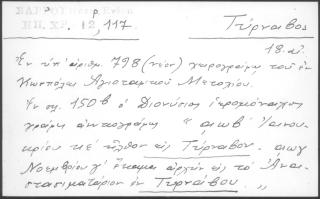 ΗΠ. ΧΡ. 12, 117.
Τύρναβος
18. αἰ.
Ἐν ὑπ' ἀριθμ. 798 (νέον) χειρογράφῳ τοῦ ἐν
Κων/πόλει Ἁγιοταφικοῦ Μετοχίου.
Ἐν σελ. 150β ὁ Διονύσιος ἱερομόναχος
γράφει αὐτογράφως " αιωβ' Ἰαννου-
αρίου κε' ἦλθον εἰς Τύρναβον. αιωγ
Νοεμβρίου γ' ἔκαμα ἀρχὴν εἰς τὸ Ἀνα-
στασιματάριον ἐν Τυρνάβου „